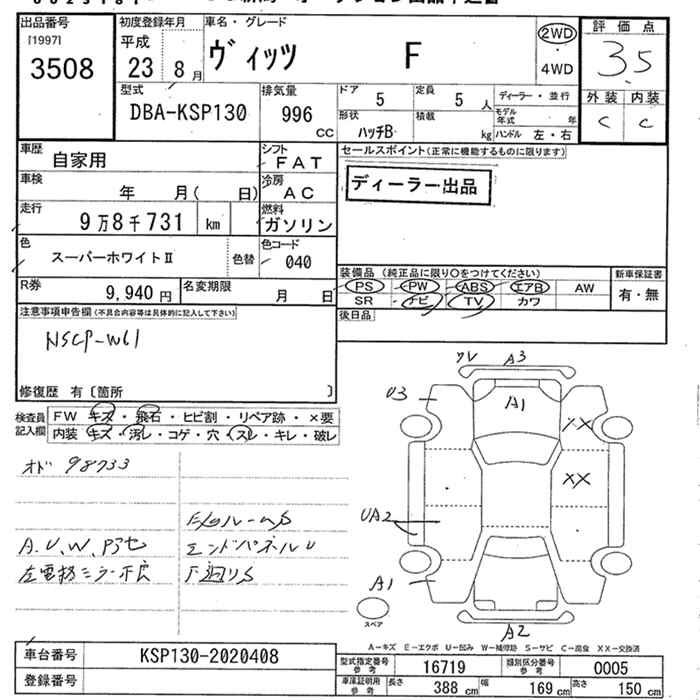 出品番号
[1997]
3508
初度登録年月
平成
23 8 月
車名・グレード
ヴィッツ F
2WD
4WD
評価点
3.5
外装 内装
C C
型式
DBA-KSP130
排気量
996
CC
ドア
5
定員
5 人
ディーラー・並行
モデル年式 年
形状
ハッチB
積載
kg
ハンドル 左・右
車歴
自家用
シフト
F A T
セールスポイント(正常に機能するものに限ります)
ディーラー出品
車検
年 月( 日)
冷房
A C
走行
9万8千731 km
燃料
ガソリン
色
スーパーホワイトⅡ
色替
色コード
040
装備品(純正品に限り○をつけてください)
新車保証書
PS PW ABS エアB AW
有・無
SR ナビ TV カワ
R券
9,940 円
名変期限
月 日
後日品
注意事項申告欄(不具合内容等は具体的に記入して下さい)
NSCP-W61
修復歴 有〔箇所 〕
検査員
記入欄
FW キズ・飛石・ヒビ割・リペア跡・×要
内装 キズ・汚レ・コゲ・穴・スレ・キレ・破レ
オド 98733
A.U.W.P3セ
エンドパネルU
下廻りS
A3
U3
A1
XX
XX
UA2
A1
スペア
A2
A-キズ E-エクボ U-凹み W-補修跡 S-サビ C-腐食 XX-交換済
車台番号
KSP130-2020408
登録番号
型式指定番号
参考
16719
類別区分番号
参考
0005
車庫証明用
参考
長さ
388 cm
幅
169 cm
高さ
150 cm